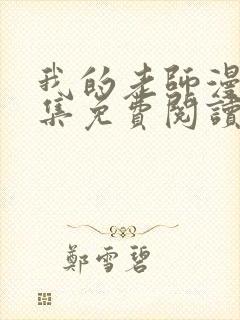 我的老師漫
集免費閱讀
鄭雪碧